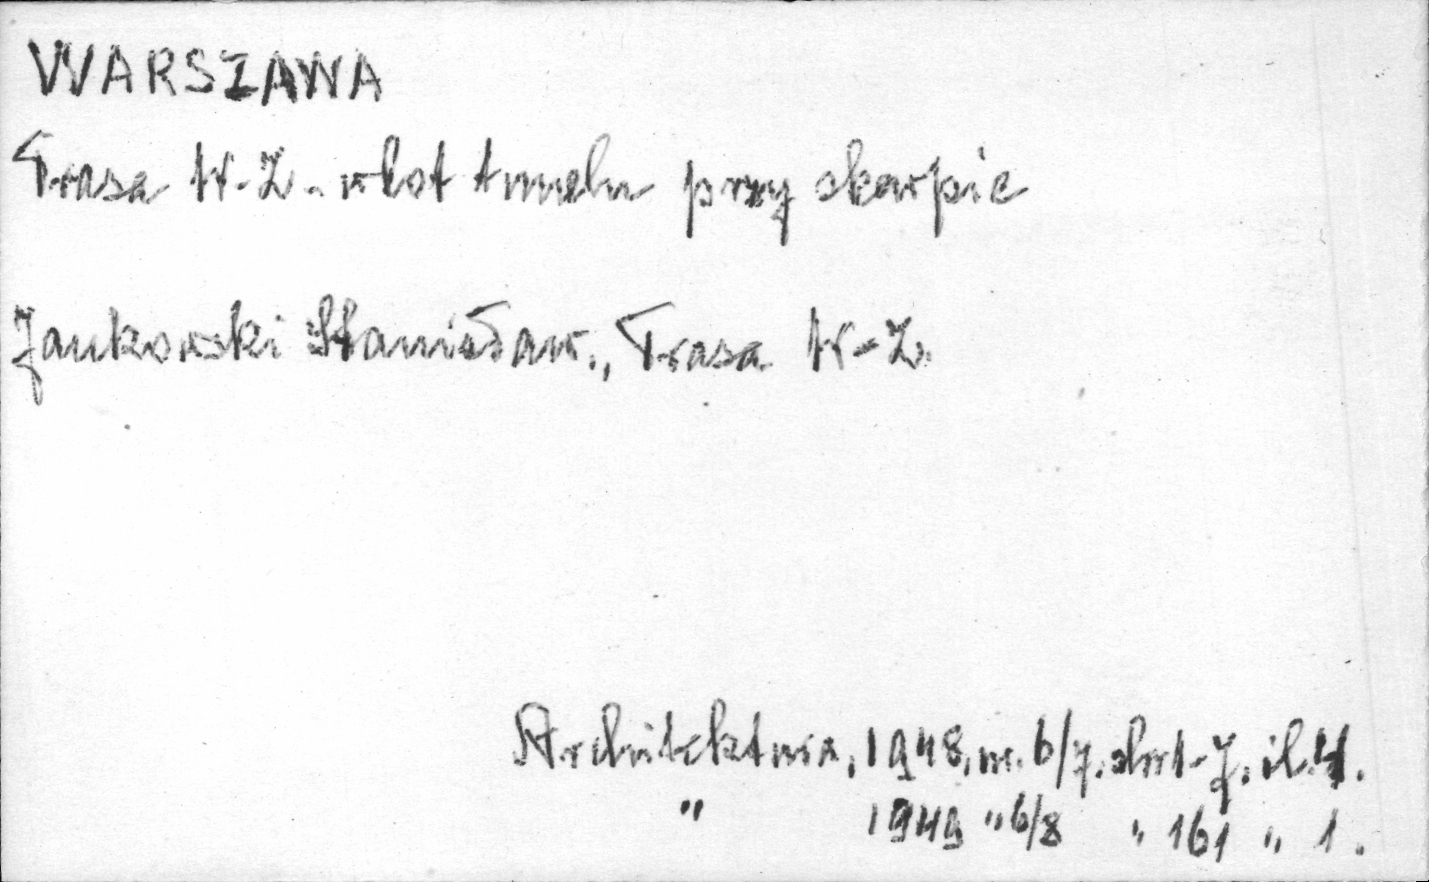 WARSZAWA
Trasa W-Z. wlot tunelu przy skarpie
Jankowski Stanisław., Trasa W-Z.
Architektura, 1948, nr. 6/7. str. 7. il. 4.
" 1949 " 6/8 " 161 " 1.